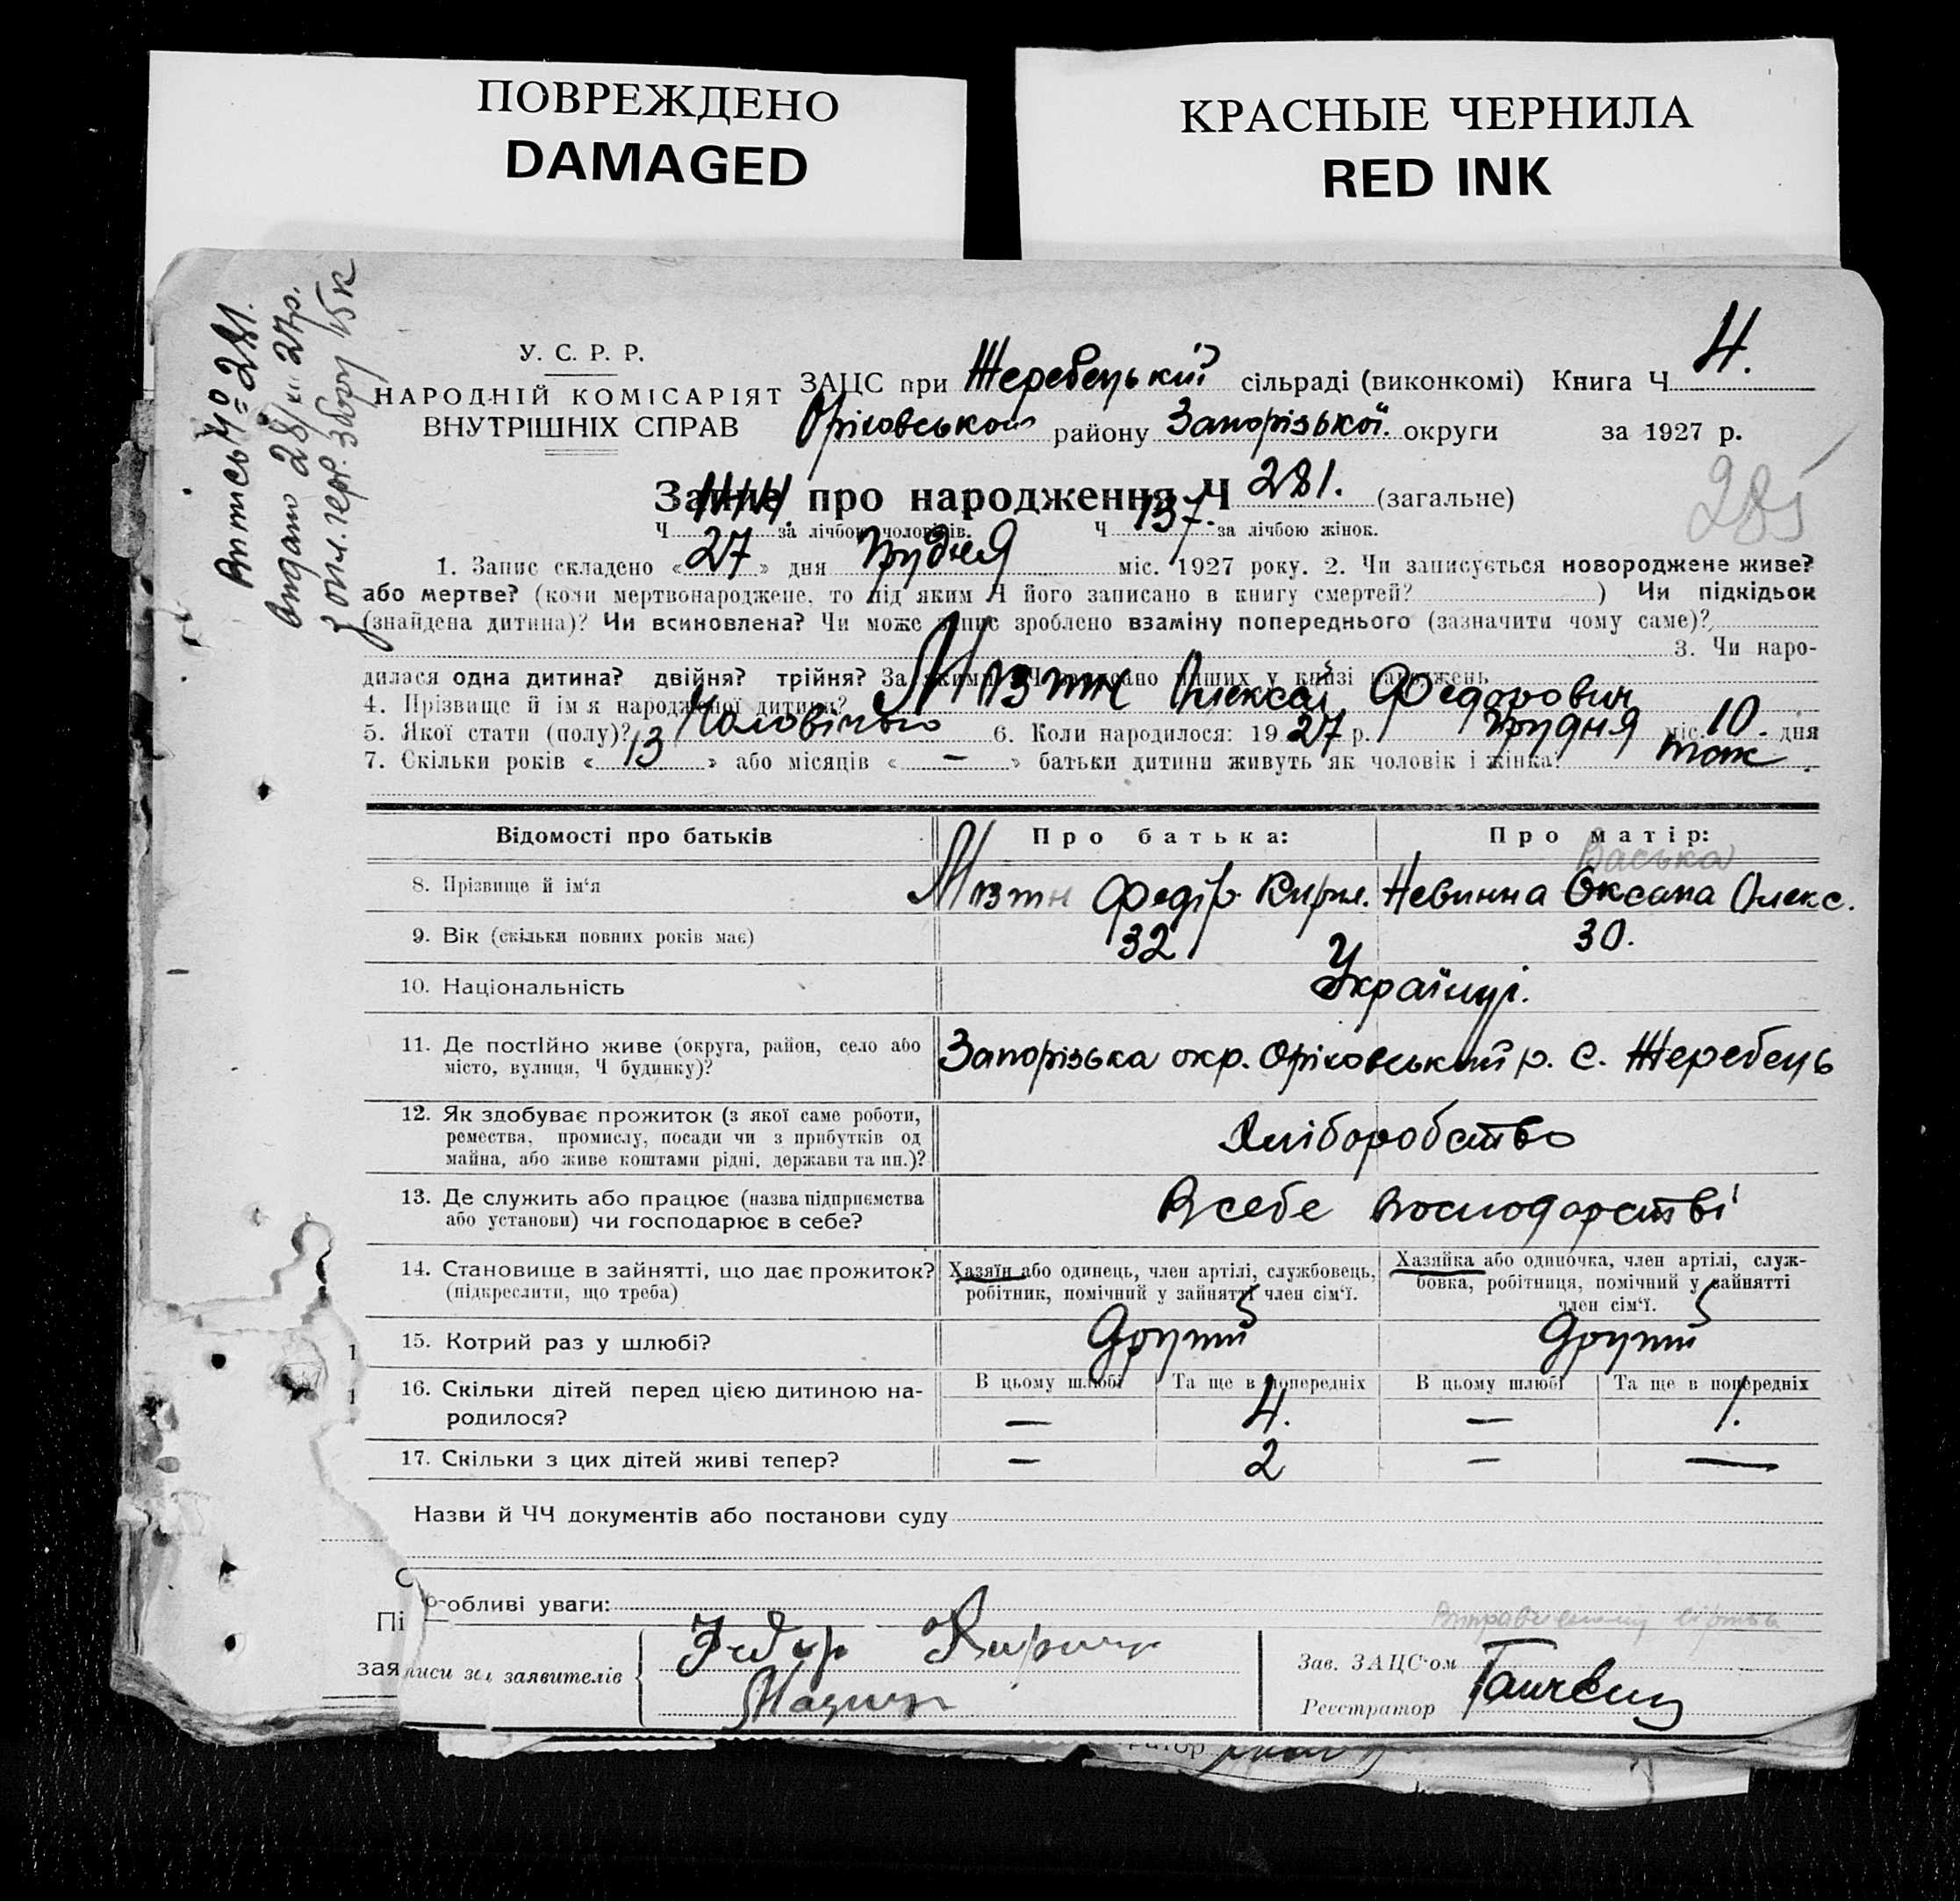 ПОВРЕЖДЕНО
DAMAGED
КРАСНЫЕ ЧЕРНИЛА
RED INK
Випись № 281.
Видано 28/XII 27р.
З опл. герб. збору 15 к
У. С. Р. Р.
НАРОДНІЙ КОМІСАРІЯТ
ВНУТРІШНІХ СПРАВ
ЗАЦС при Жеребецький сільраді (виконкомі) Книга Ч 4.
Оріховського району Запорізької округи за 1927 р.
Запис про народження Ч 281. (загальне)
285
Ч 144. за лічбою чоловіків. Ч 137. за лічбою жінок.
1. Запис складено «27» дня Грудня міс. 1927 року. 2. Чи записується новороджене живе?
або мертве? (коли мертвонароджене, то під яким Ч його записано в книгу смертей? ) Чи підкідьок
(знайдена дитина)? Чи всиновлена? Чи може запис зроблено взаміну попереднього (зазначити чому саме)?
3. Чи наро-
дилася одна дитина? двійня? трійня? За якими ЧЧ записано інших у книзі народжень
4. Прізвище й ім'я народженої дитини? Олексай Федорович
5. Якої стати (полу)? Чоловічого 6. Коли народилося: 1927 р. Грудня міс. 10. дня
7. Скільки років «13» або місяців «—» батьки дитини живуть як чоловік і жінка.
Відомості про батьків
Про батька:
Про матір:
Васька
8. Прізвище й ім'я Федір Кирил. Невинна Оксана Олекс.
9. Вік (скільки повних років має) 32 30.
10. Національність Українці.
11. Де постійно живе (округа, район, село або
місто, вулиця, Ч будинку)?
Запорізька окр. Оріховський р. С. Жеребець
12. Як здобуває прожиток (з якої саме роботи,
ремества, промислу, посади чи з прибутків од
майна, або живе коштами рідні, держави та ин.)?
Хліборобство
13. Де служить або працює (назва підприємства
або установи) чи господарює в себе?
В себе в господарстві
14. Становище в зайнятті, що дає прожиток?
(підкреслити, що треба)
Хазяїн або одинець, член артілі, службовець,
робітник, помічний у зайнятті член сім'ї.
Хазяйка або одиночка, член артілі, служ-
бовка, робітниця, помічний у зайнятті
член сім'ї.
15. Котрий раз у шлюбі? Другий Другий
16. Скільки дітей перед цією дитиною на-
родилося?
В цьому шлюбі Та ще в попередніх В цьому шлюбі Та ще в попередніх
— 4. — 1.
17. Скільки з цих дітей живі тепер? — 2 — —
Назви й ЧЧ документів або постанови суду
обливі уваги:
Пі
зая писи заявителів
Федир
Зав. ЗАЦС'ом
Реєстратор